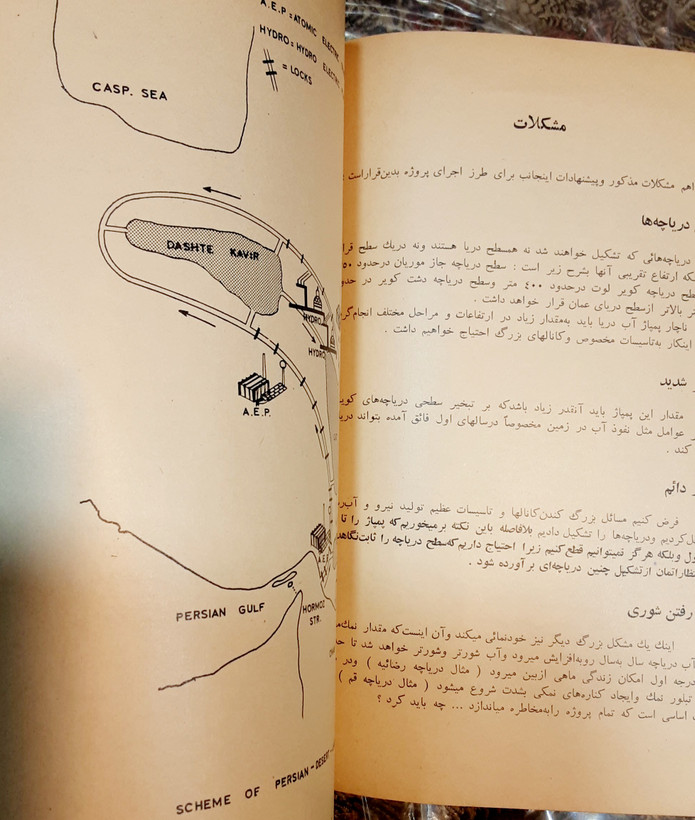 A.E.P = ATOMIC ELECTRIC
HYDRO = HYDRO ELECTRIC
= LOCKS
CASP. SEA
DASHTE KAVIR
HYDRO
HYDRO
A.E.P.
A.E.
PERSIAN GULF
HORMOZ
STR.
SCHEME OF PERSIAN-DESERT
مشکلات
اهم مشکلات مذکور وپیشنهادات اینجانب برای طرز اجرای پروژه بدین‌قراراست :
دریاچه‌ها
دریاچه‌هائی که تشکیل خواهند شد نه همسطح دریا هستند ونه دریك سطح
ارتفاع تقریبی آنها بشرح زیر است : سطح دریاچه جاز موریان درحدود
دریاچه کویر لوت درحدود ٤٠٠ متر وسطح دریاچه دشت کویر در
بالاتر ازسطح دریای عمان قرار خواهد داشت .
ناچار پمپاژ آب دریا باید به‌مقدار زیاد در ارتفاعات و مراحل مختلف
اینکار به‌تاسیسات مخصوص وکانالهای بزرگ احتیاج خواهیم داشت .
شدید
مقدار این پمپاژ باید آنقدر زیاد باشدکه بر تبخیر سطحی دریاچه‌های
عوامل مثل نفوذ آب در زمین مخصوصاً درسالهای اول فائق آمده بتواند
کند .
دائم
فرض کنیم مسائل بزرگ کندن‌کانالها و تاسیسات عظیم تولید نیرو و
ودریاچه‌ها را تشکیل‌دادیم بلافاصله باین نکته برمیخوریم‌که پمپاژ را تا
وبلکه هرگز نمیتوانیم قطع‌کنیم زیرا احتیاج داریم‌که‌سطح دریاچه را
ازتشکیل چنین دریاچه‌ای برآورده شود .
رفتن شوری
اینك یك مشکل بزرگ دیگر نیز خودنمائی میکند وآن اینست‌که مقدار
آب دریاچه سال به‌سال روبه‌افزایش میرود وآب شورتر وشورتر خواهد شد تا
درجه اول امکان زندگی ماهی ازبین میرود ( مثال دریاچه رضائیه ) ودر
تبلور نمك وایجاد کناره‌های نمکی بشدت شروع میشود ( مثال دریاچه قم )
اساسی است که تمام پروژه رابه‌مخاطره میاندازد ... چه باید کرد ؟